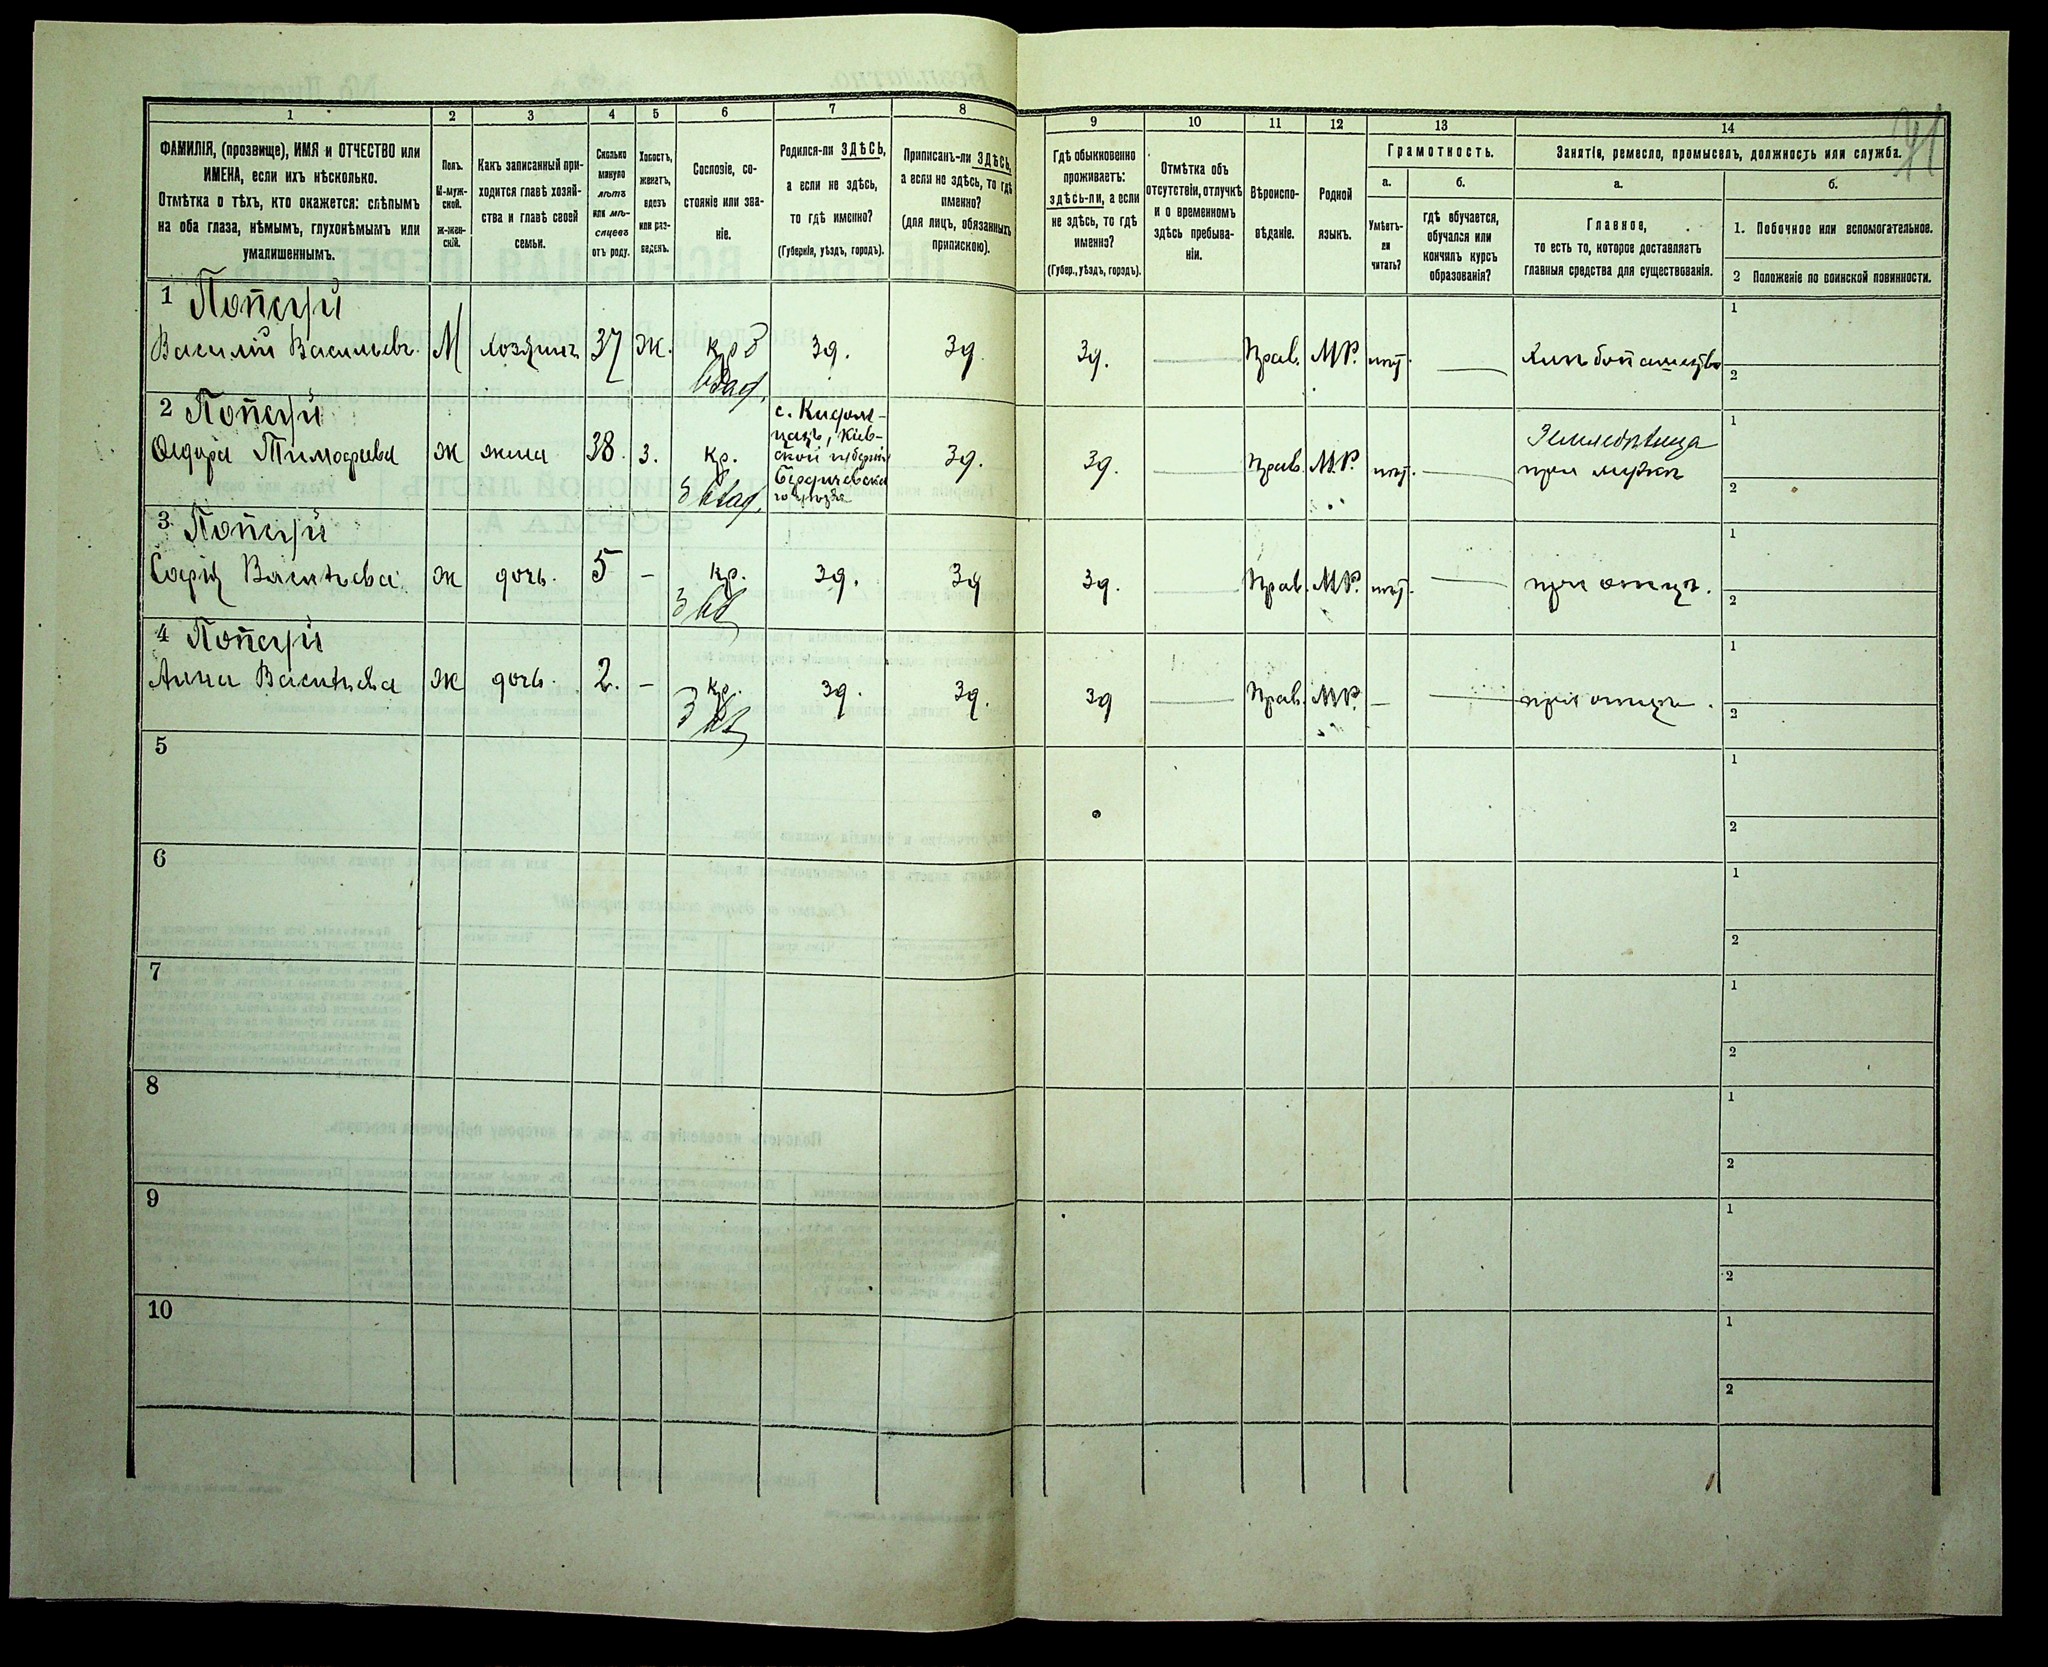 1 2 3 4 5 6 7 8 9 10 11 12 13 14
ФАМИЛІЯ, (прозвище), ИМЯ и ОТЧЕСТВО или
ИМЕНА, если ихъ нѣсколько.
Отмѣтка о тѣхъ, кто окажется: слѣпымъ
на оба глаза, нѣмымъ, глухонѣмымъ или
умалишеннымъ.
Полъ.
М-муж-
ской.
ж-жен-
скій.
Какъ записанный при-
ходится главѣ хозяй-
ства и главѣ своей
семьи.
Сколько
минуло
лѣтъ
или мѣ-
сяцевъ
отъ роду.
Холостъ,
женатъ,
вдовъ
или раз-
веденъ.
Сословіе, со-
стояніе или зва-
ніе.
Родился-ли ЗДѢСЬ,
а если не здѣсь,
то гдѣ именно?
(Губернія, уѣздъ, городъ).
Приписанъ-ли ЗДѢСЬ,
а если не здѣсь, то гдѣ
именно?
(для лицъ, обязанныхъ
припискою).
Гдѣ обыкновенно
проживаетъ:
здѣсь-ли, а если
не здѣсь, то гдѣ
именно?
(Губер., уѣздъ, городъ).
Отмѣтка объ
отсутствіи, отлучкѣ
и о временномъ
здѣсь пребыва-
ніи.
Вѣроиспо-
вѣданіе.
Родной
языкъ.
Грамотность.
а.
Умѣетъ-
ли
читать?
б.
гдѣ обучается,
обучался или
кончилъ курсъ
образованія?
Занятіе, ремесло, промыселъ, должность или служба.
а.
Главное,
то есть то, которое доставляетъ
главныя средства для существованія.
б.
1. Побочное или вспомогательное.
2 Положеніе по воинской повинности.
91
1
Василій Васильевъ. М хозяинъ 37 Ж. кр зд. зд. зд. Прав. МР. нѣт. Хлѣбопашество
влад.
1
2
2
Тимофѣева Ж жена 38. з. кр. зд. зд. Прав. М.Р. нѣт.
Кіев-
ской губерніи
Бердичевска
го уѣзда
при мужѣ
влад.
1
2
3
Софія Васильева Ж дочь. 5 – кр. зд. зд зд. Прав. М.Р. нѣт. при отцѣ.
1
2
4
Анна Васильева Ж дочь. 2. – кр. зд. зд. зд Прав. М.Р. – при отцѣ.
1
2
5
1
2
6
1
2
7
1
2
8
1
2
9
1
2
10
1
2